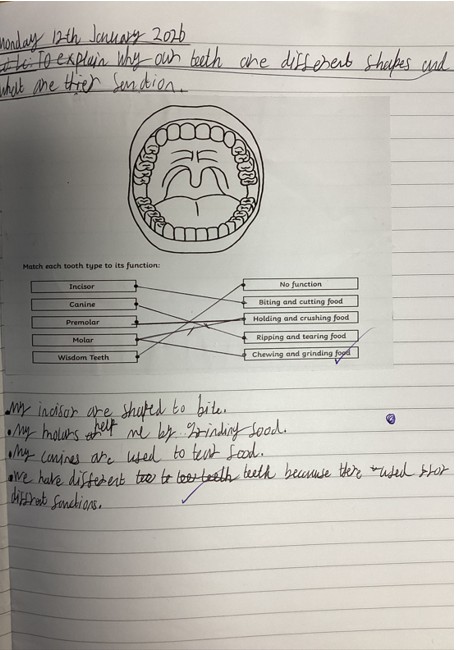 Monday 12th January 2026
To explain why our teeth are different shapes and
what are thier function.
Match each tooth type to its function:
Incisor
Canine
Premolar
Molar
Wisdom Teeth
No function
Biting and cutting food
Holding and crushing food
Ripping and tearing food
Chewing and grinding food
• My incisor are shaped to bite.
• My molars help me by grinding food.
• My canines are used to tear food.
• we have different teeth because there used for
diffrent functions.